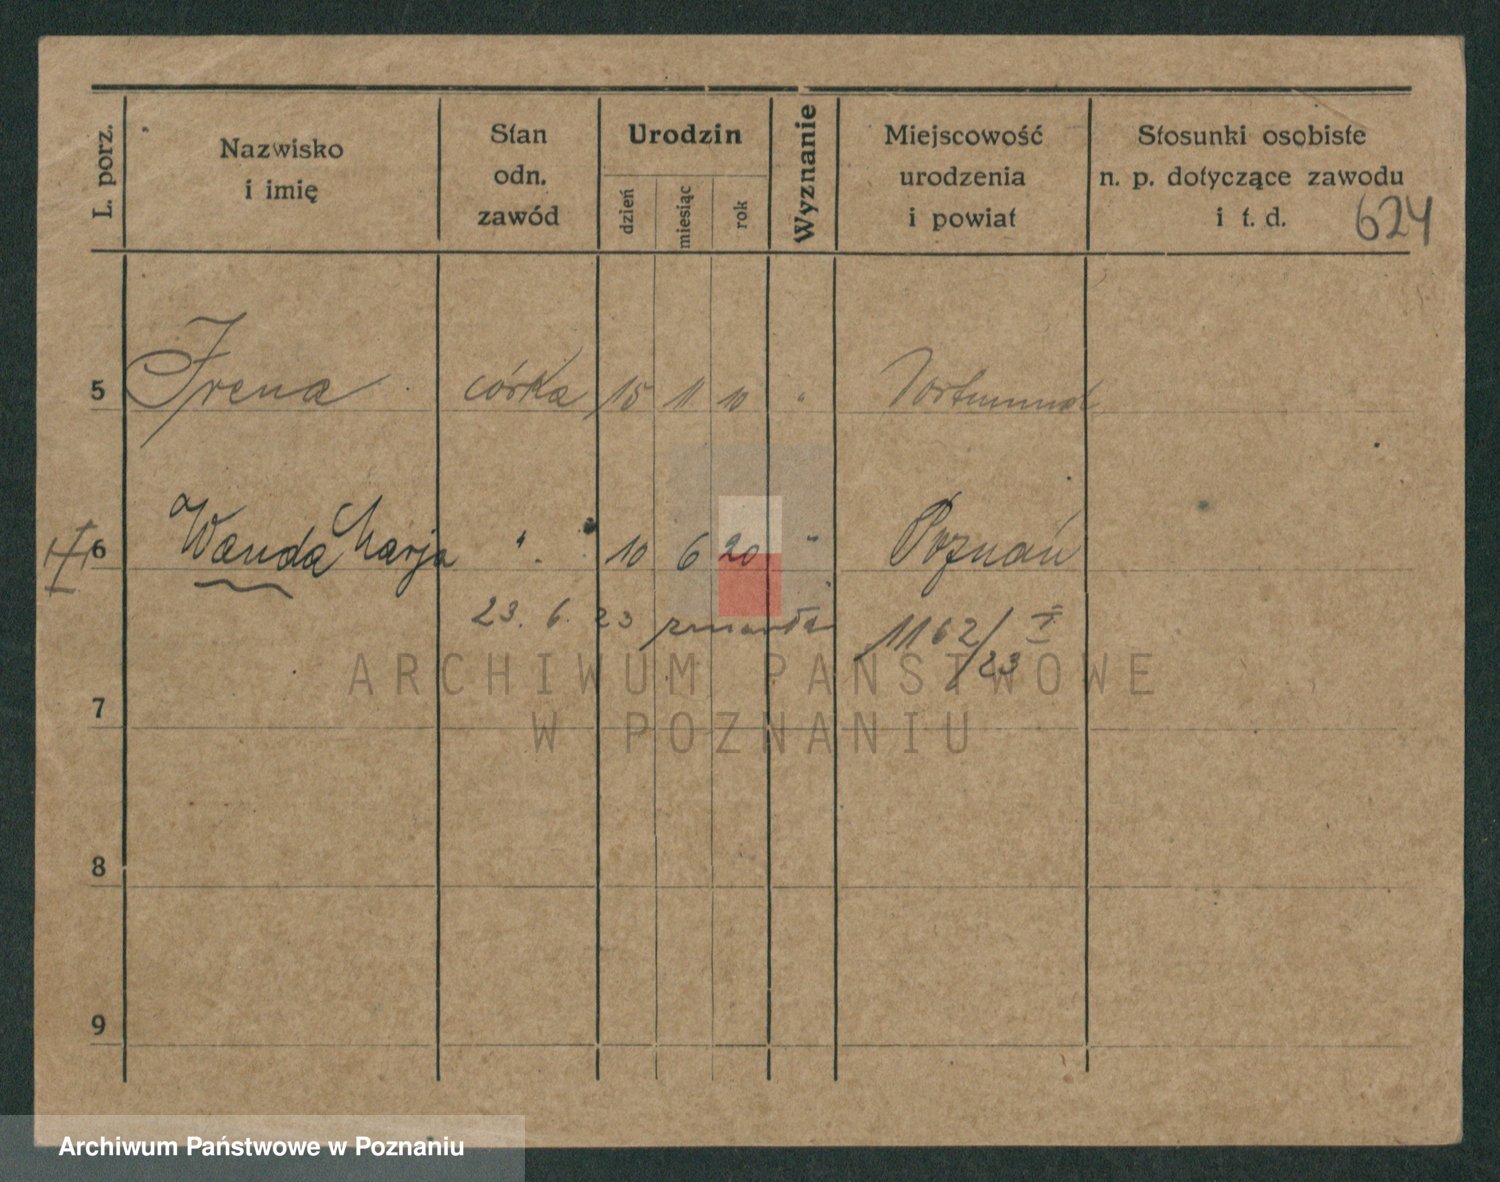 L. porz. Nazwisko i imię Stan odn. zawód Urodzin dzień miesiąc rok Wyznanie Miejscowość urodzenia i powiat Stosunki osobiste n. p. dotyczące zawodu i t. d. 624
5 Irena córka 15 11 10 " Dortmund
6 Wanda Marja " 10 6 20 " Poznań
23. 6. 23 zmarła 1162/23 I
ARCHIWUM PAŃSTWOWE
W POZNANIU
7
8
9
Archiwum Państwowe w Poznaniu